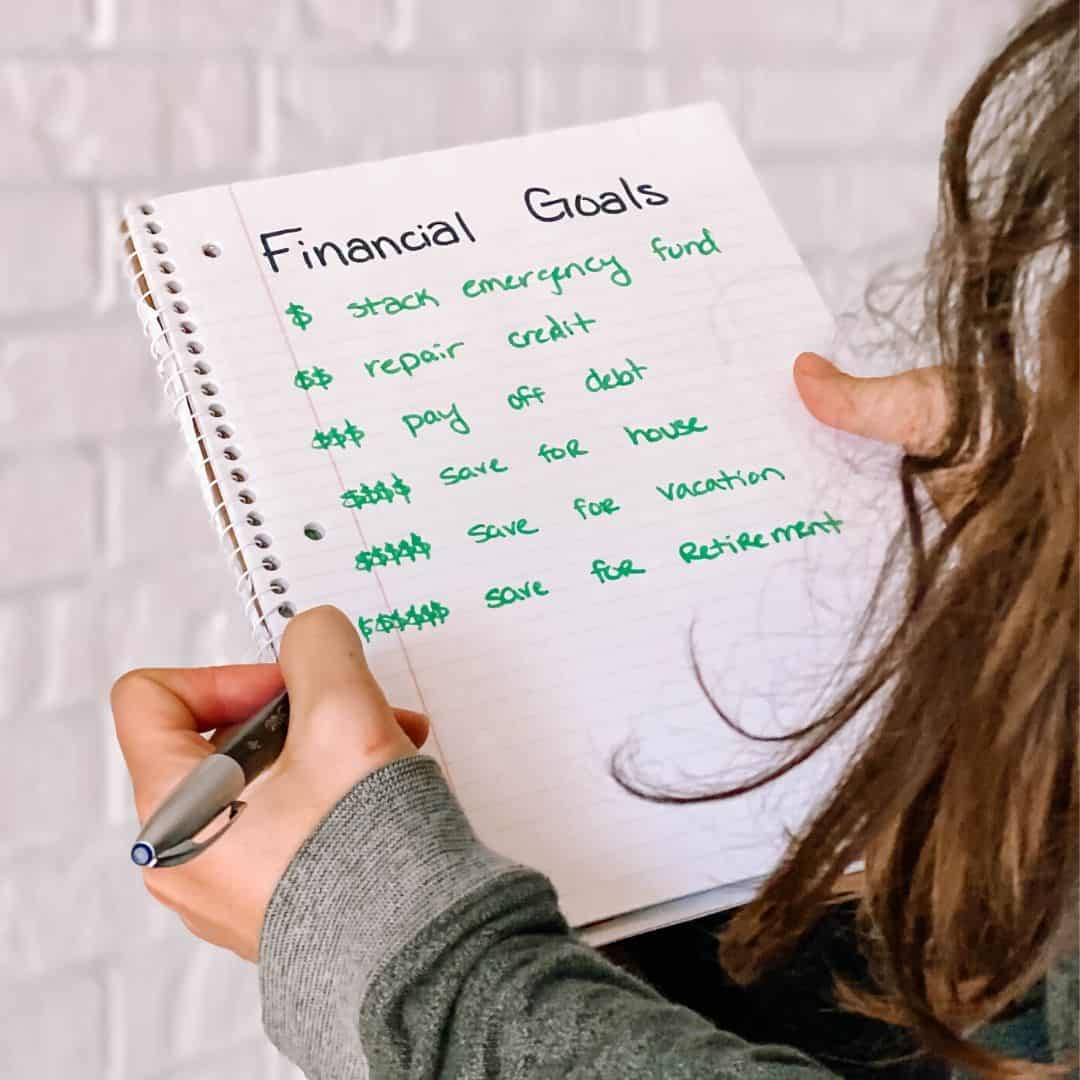 Financial Goals
$ stack emergency fund
$$ repair credit
$$$ pay off debt
$$$$ save for house
$$$$$ save for vacation
$$$$$$ save for Retirement